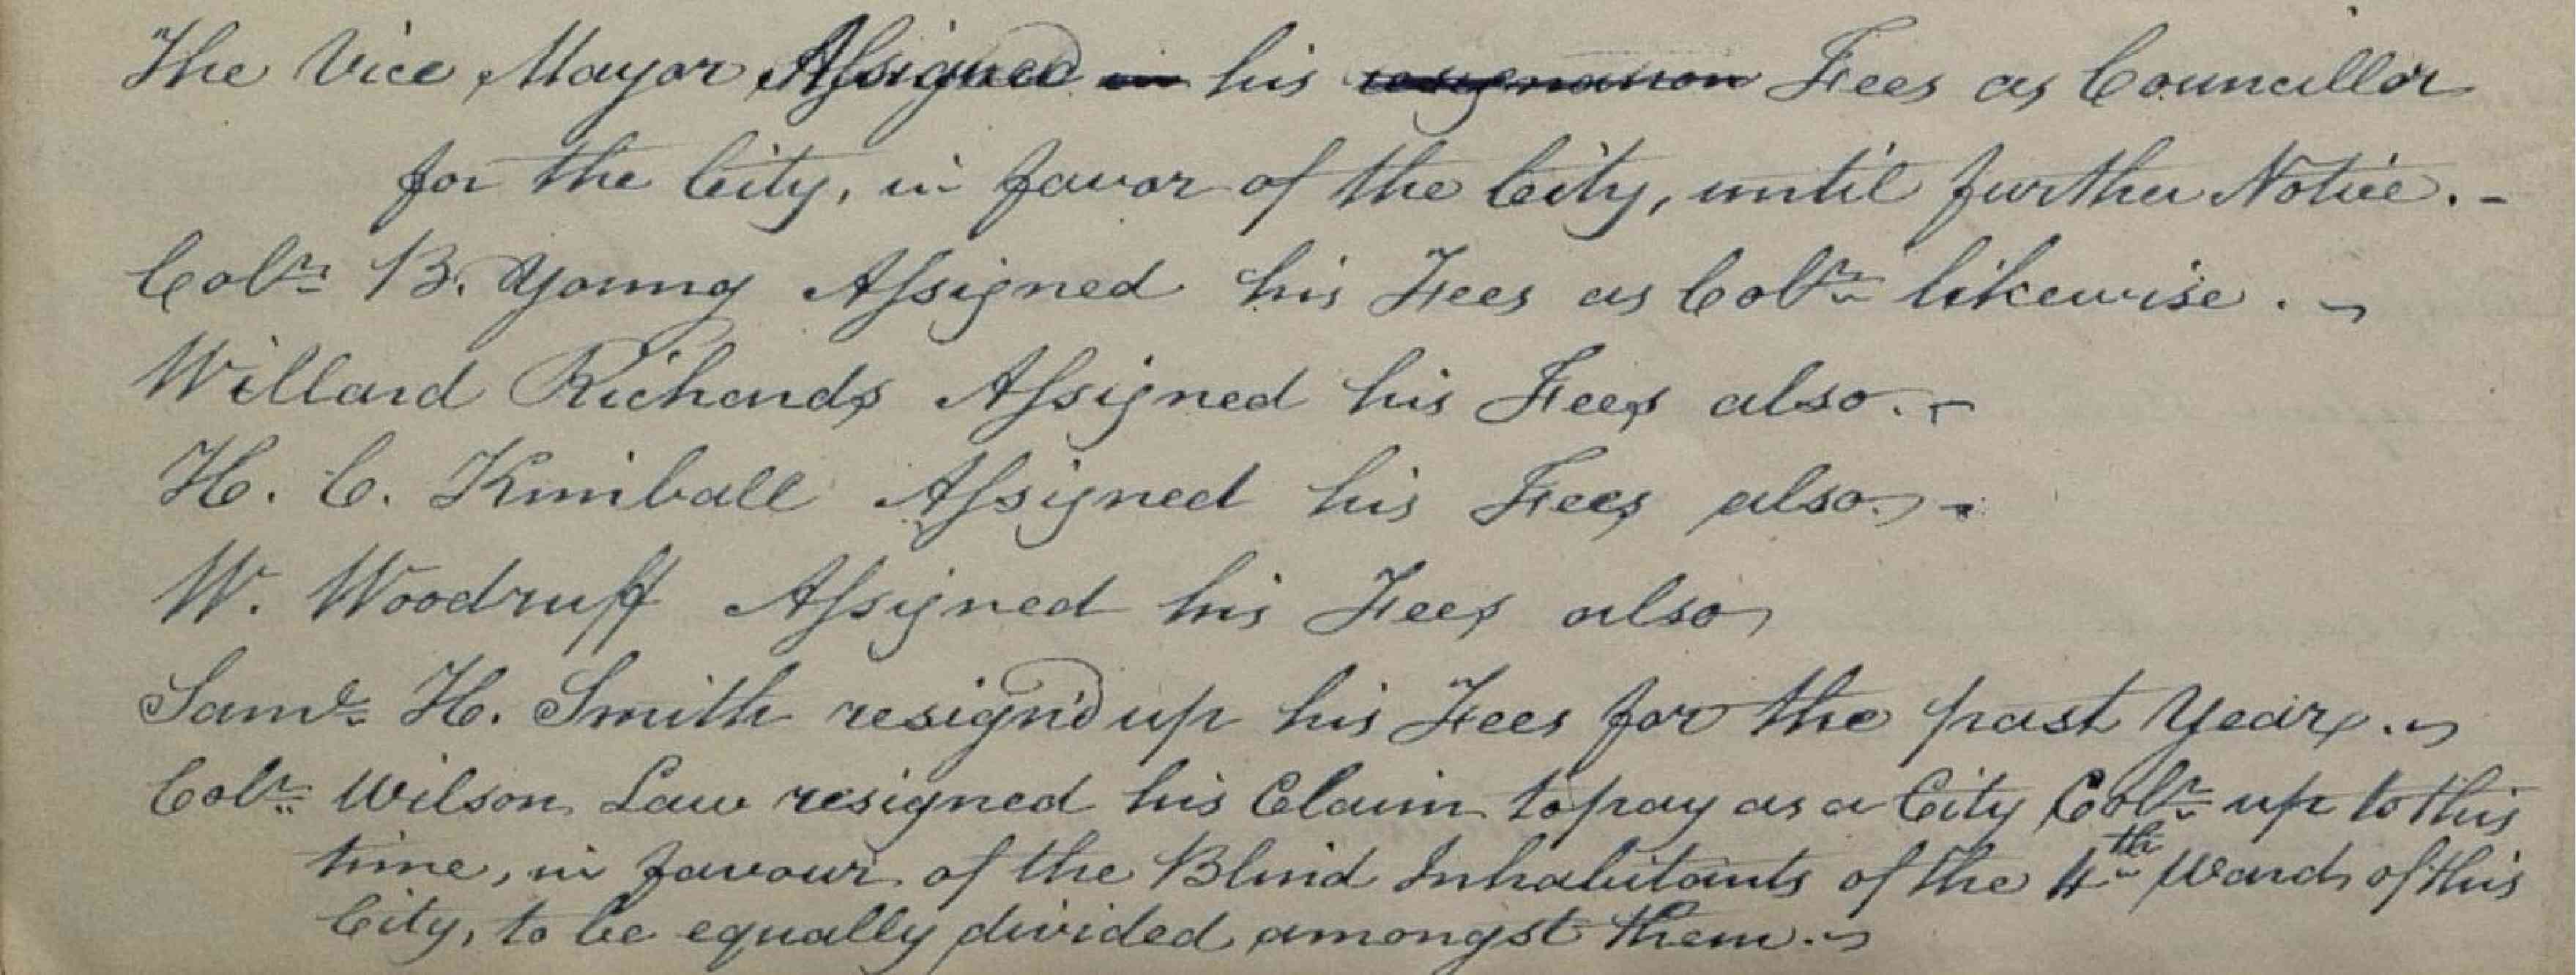 The Vice Mayor Assigned in his resignation Fees as Councillor
for the City, in favor of the City, until further Notice. -
Colr. B. Young Assigned his Fees as Colr. likewise. -
Willard Richards Assigned his Fees also. -
H. C. Kimball Assigned his Fees also. -
W. Woodruff Assigned his Fees also
Saml. H. Smith resign'd up his Fees for the past Year. -
Colr. Wilson Law resigned his Claim to pay as a City Colr. up to this
time, in favour of the Blind Inhabitants of the 4th Ward of this
City, to be equally divided amongst them. -